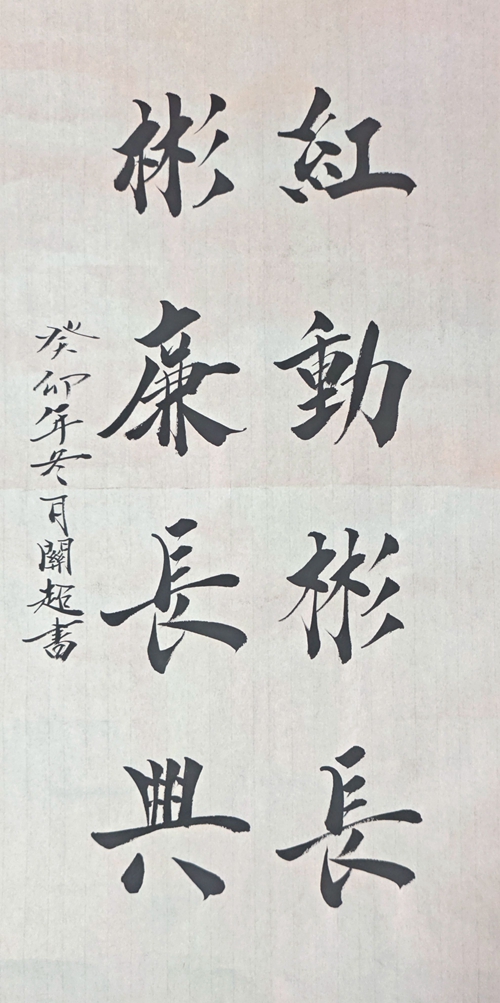 紅動彬長
彬廉長興
癸卯年冬月關超書